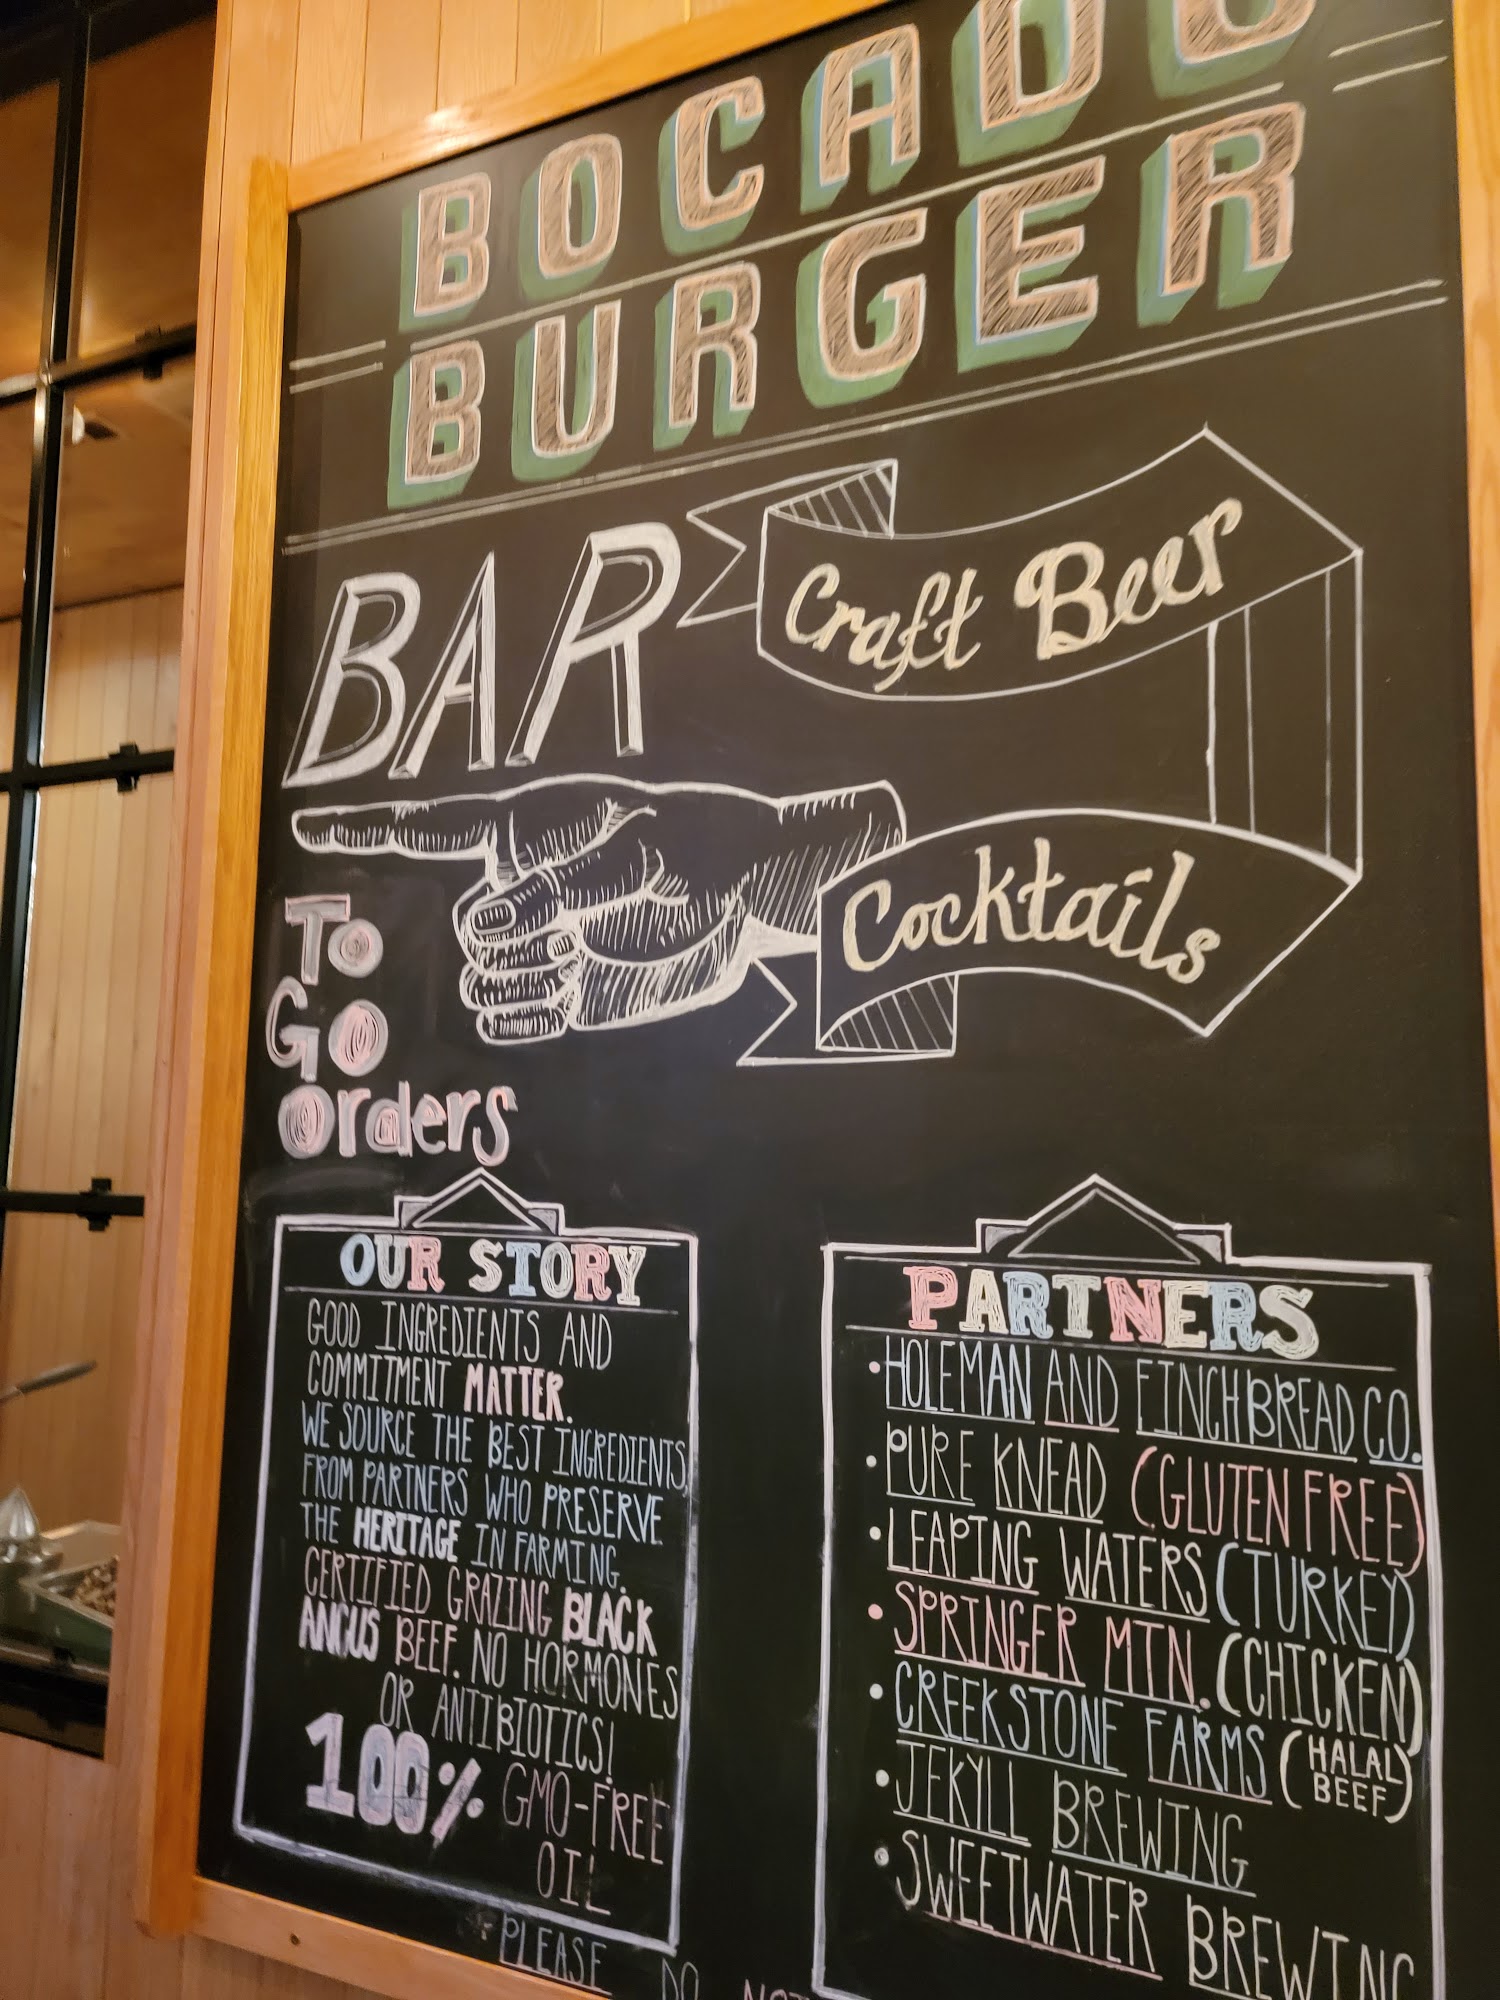 BOCADO
BURGER
BAR
Craft Beer
Cocktails
To
Go
Orders
OUR STORY
GOOD INGREDIENTS AND
COMMITMENT MATTER.
WE SOURCE THE BEST INGREDIENTS,
FROM PARTNERS WHO PRESERVE
THE HERITAGE IN FARMING.
CERTIFIED GRAZING BLACK
ANGUS BEEF. NO HORMONES
OR ANTIBIOTICS!
100% GMO-FREE
OIL
PARTNERS
• HOLEMAN AND FINCH BREAD CO.
• PURE KNEAD (GLUTEN FREE)
• LEAPING WATERS (TURKEY)
• SPRINGER MTN. (CHICKEN)
• CREEKSTONE FARMS (HALAL BEEF)
• JEKYLL BREWING
• SWEETWATER BREWING
PLEASE DO NOT